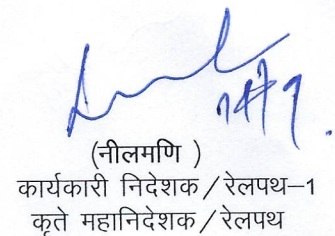 (नीलमणि )
कार्यकारी निदेशक/रेलपथ–1
कृते महानिदेशक/रेलपथ